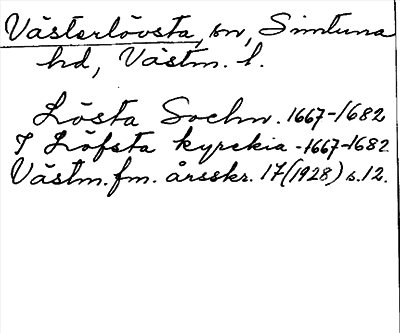 Västerlövsta, sn, Simtuna
hd, Västm. l.
Lösta Sochn. 1667-1682
I Löfsta kyrckia -1667-1682.
Västm. fm. årsskr. 17(1928) s. 12.